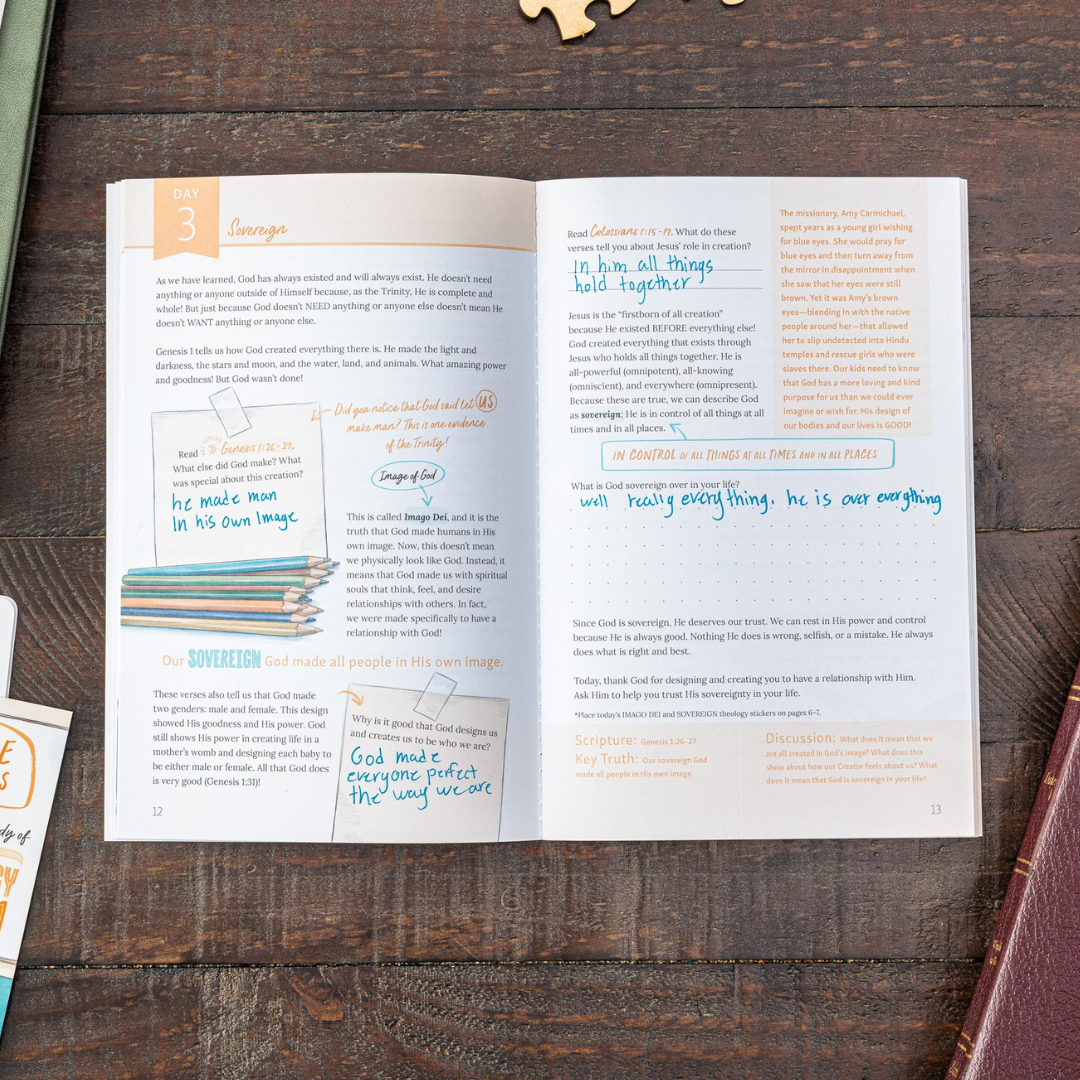 DAY
3
Sovereign
As we have learned, God has always existed and will always exist. He doesn't need
anything or anyone outside of Himself because, as the Trinity, He is complete and
whole! But just because God doesn't NEED anything or anyone else doesn't mean He
doesn't WANT anything or anyone else.
Genesis 1 tells us how God created everything there is. He made the light and
darkness, the stars and moon, and the water, land, and animals. What amazing power
and goodness! But God wasn't done!
Did you notice that God said let US
make man? This is one evidence
of the Trinity!
Read Genesis 1:26-27.
What else did God make? What
was special about this creation?
he made man
In his own Image
Image of God
This is called Imago Dei, and it is the
truth that God made humans in His
own image. Now, this doesn't mean
we physically look like God. Instead, it
means that God made us with spiritual
souls that think, feel, and desire
relationships with others. In fact,
we were made specifically to have a
relationship with God!
Our SOVEREIGN God made all people in His own image.
These verses also tell us that God made
two genders: male and female. This design
showed His goodness and His power. God
still shows His power in creating life in a
mother's womb and designing each baby to
be either male or female. All that God does
is very good (Genesis 1:31)!
Why is it good that God designs us
and creates us to be who we are?
God made
everyone perfect
the way we are
12
Read Colossians 1:15-17. What do these
verses tell you about Jesus' role in creation?
In him all things
hold together
Jesus is the "firstborn of all creation"
because He existed BEFORE everything else!
God created everything that exists through
Jesus who holds all things together. He is
all-powerful (omnipotent), all-knowing
(omniscient), and everywhere (omnipresent).
Because these are true, we can describe God
as sovereign; He is in control of all things at all
times and in all places.
The missionary, Amy Carmichael,
spent years as a young girl wishing
for blue eyes. She would pray for
blue eyes and then turn away from
the mirror in disappointment when
she saw that her eyes were still
brown. Yet it was Amy's brown
eyes—blending in with the native
people around her—that allowed
her to slip undetected into Hindu
temples and rescue girls who were
slaves there. Our kids need to know
that God has a more loving and kind
purpose for us than we could ever
imagine or wish for. His design of
our bodies and our lives is GOOD!
IN CONTROL OF ALL THINGS AT ALL TIMES AND IN ALL PLACES
What is God sovereign over in your life?
well really everything, he is over everything
Since God is sovereign, He deserves our trust. We can rest in His power and control
because He is always good. Nothing He does is wrong, selfish, or a mistake. He always
does what is right and best.
Today, thank God for designing and creating you to have a relationship with Him.
Ask Him to help you trust His sovereignty in your life.
*Place today's IMAGO DEI and SOVEREIGN theology stickers on pages 6-7.
Scripture: Genesis 1:26-27
Key Truth: Our sovereign God
made all people in His own image.
Discussion: What does it mean that we
are all created in God's image? What does this
show about how our Creator feels about us? What
does it mean that God is sovereign in your life?
13
dy of